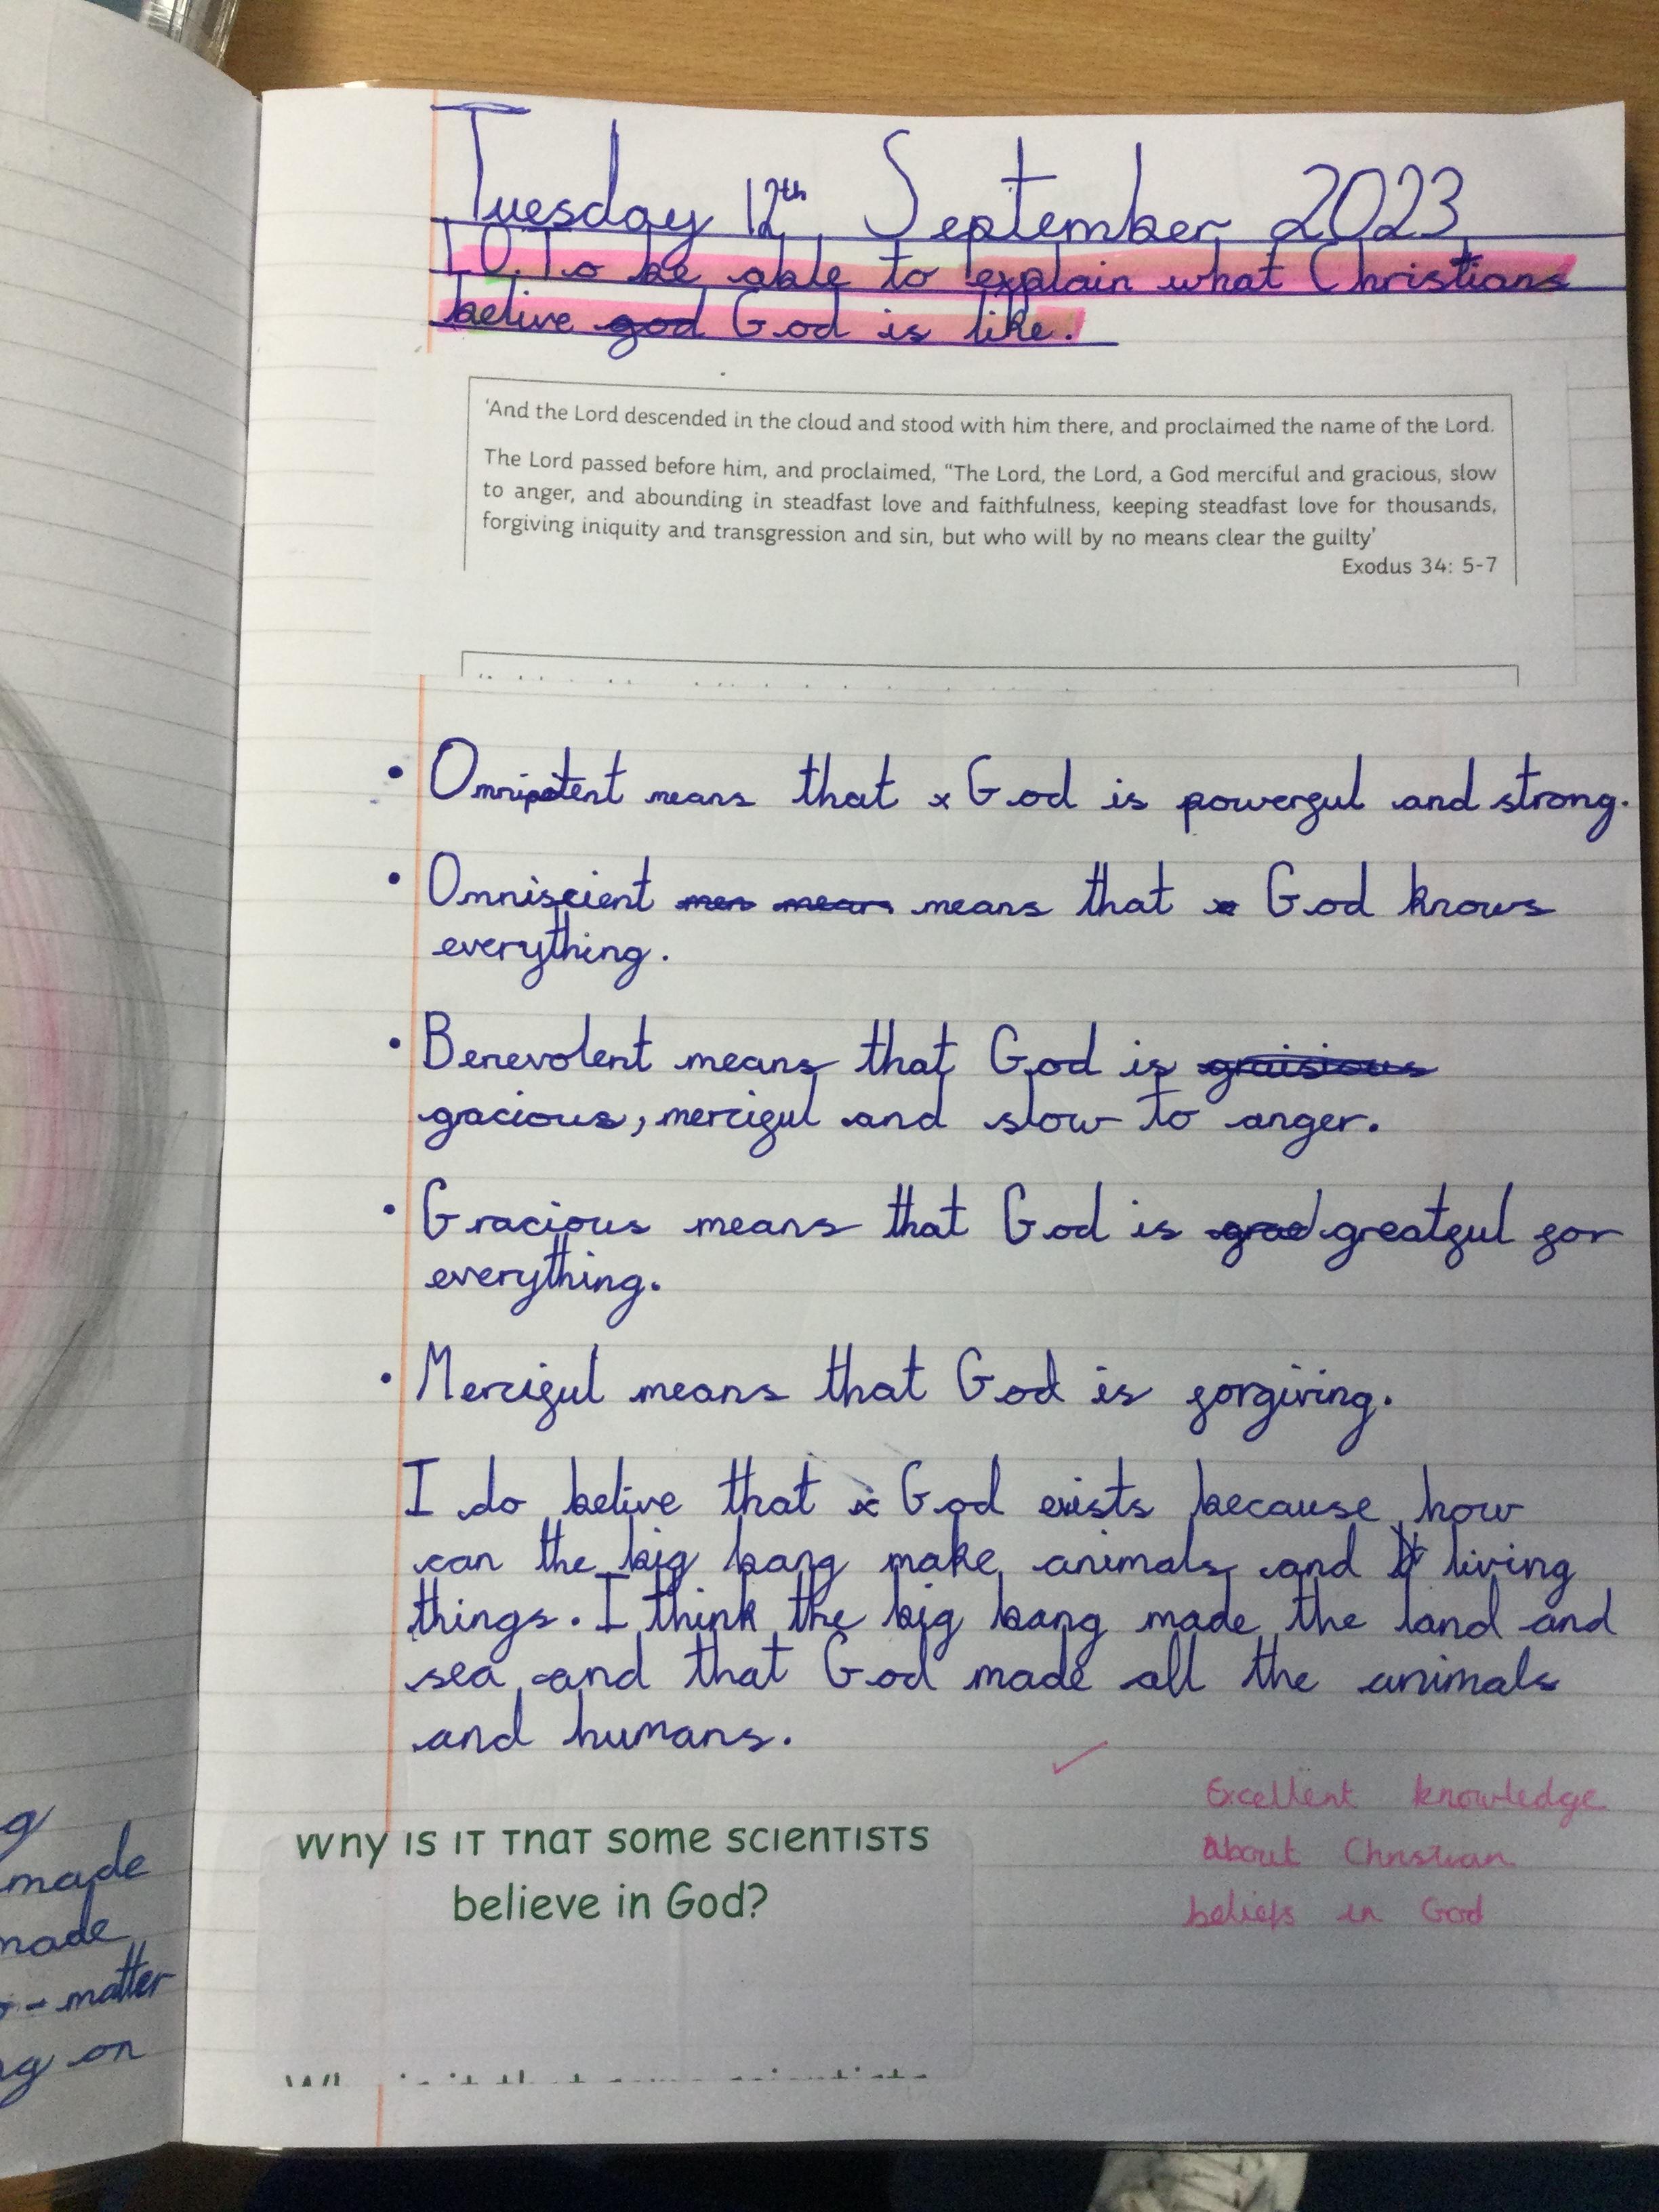 Tuesday 12th September 2023
L.O. To be able to explain what Christians
belive god God is like.
'And the Lord descended in the cloud and stood with him there, and proclaimed the name of the Lord.
The Lord passed before him, and proclaimed, "The Lord, the Lord, a God merciful and gracious, slow
to anger, and abounding in steadfast love and faithfulness, keeping steadfast love for thousands,
forgiving iniquity and transgression and sin, but who will by no means clear the guilty'
Exodus 34: 5-7
• Omnipotent means that x God is powerful and strong.
• Omniscient men mean means that God knows
everything.
• Benevolent means that God is graisious
gracious, merciful and slow to anger.
• Gracious means that God is grad greatful for
everything.
• Merciful means that God is forgiving.
I do belive that God exists because how
can the big bang make animals and living
things. I think the big bang made the land and
sea and that God made all the animals
and humans.
Excellent knowledge
about Christian
beliefs in God
Why is it that some scientists
believe in God?
g
made
made
- matter
g on